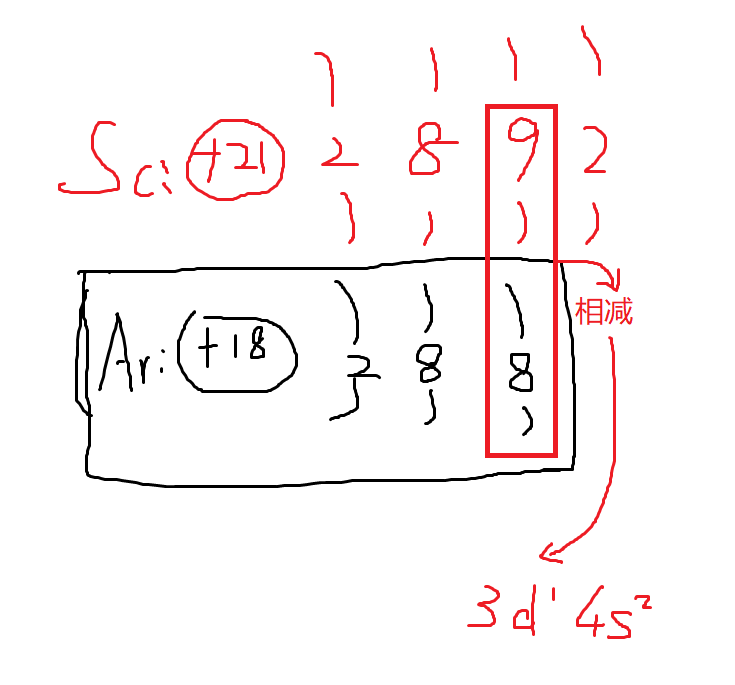 Sc: +21 2 8 9 2
Ar: +18 2 8 8
相减
3d¹4s²